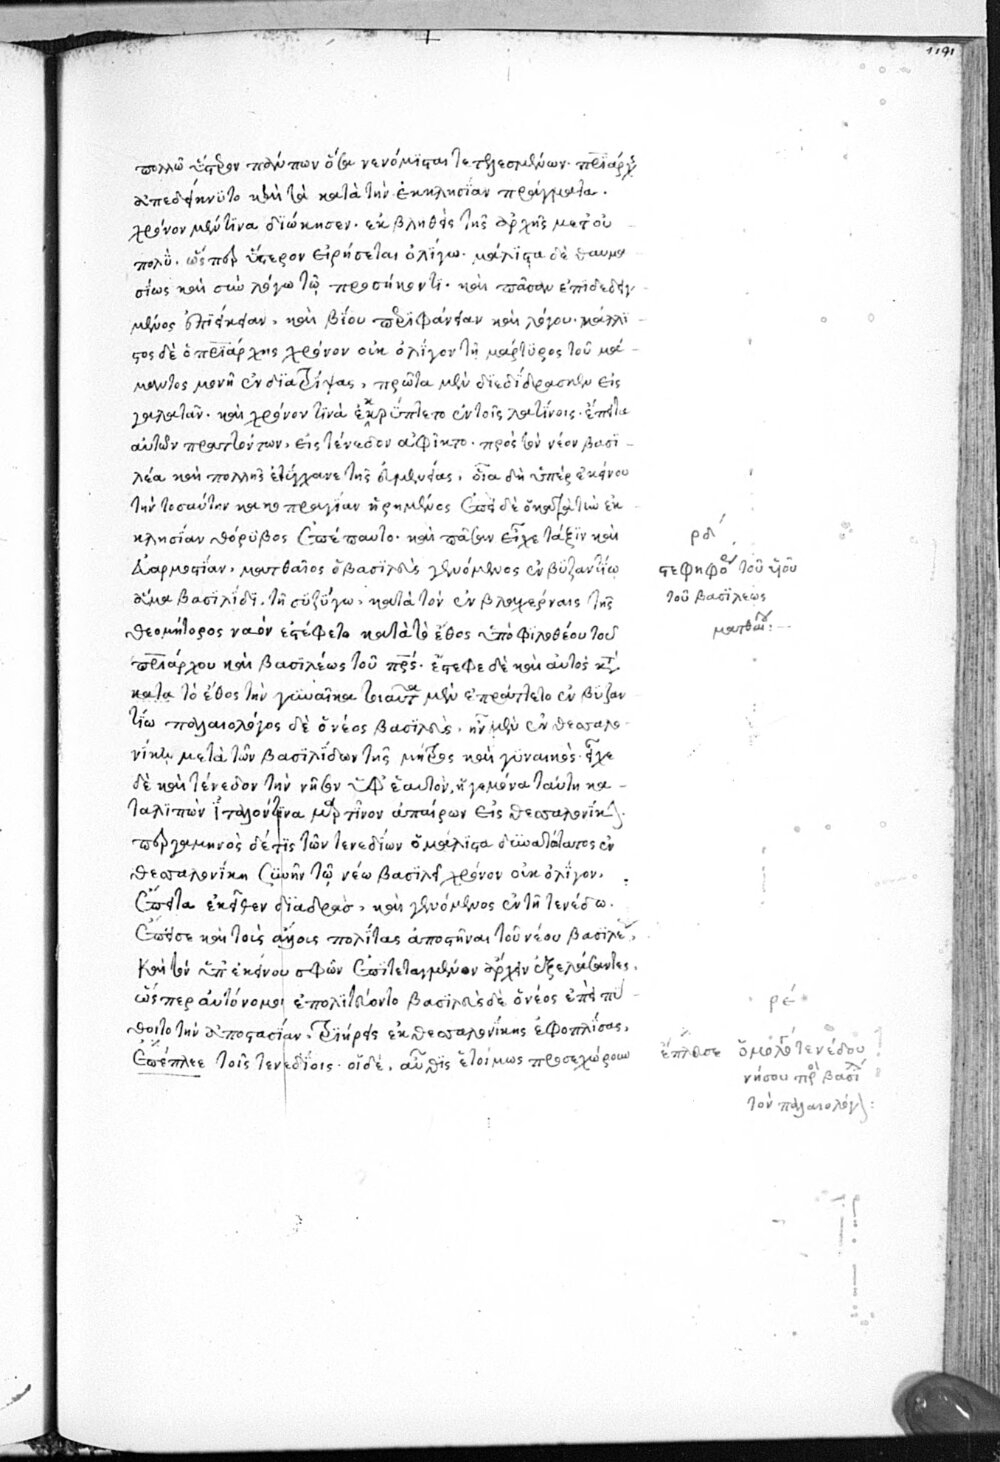 πολλῶ ὕστερον πολύπων ὅσα νενόμισται τετελεσμένων. πριάρχης
ἀπεδείκνυτο καὶ τὰ κατὰ τὴν ἐκκλησίαν πράγματα.
χρόνον μέν τινα διώκησεν. ἐκβληθεὶς τῆς ἀρχῆς μετ οὐ
πολὺ. ὥσπερ ὕστερον εἰρήσεται ὀλίγω. μάλιστα δὲ θαυμα
σίως καὶ σὺν λόγω τῶ προσήκοντι. καὶ πᾶσαν ἐπιδεδειγ
μένος ἐπιείκειαν, καὶ βίου περιφάνειαν καὶ λόγου. κάλλι
στος δὲ ὁ πριάρχης χρόνον οὐκ ὀλίγον τῆ μάρτυρος τοῦ μά
μαντος μονῆ ἐνδιατρίψας, πρῶτα μὲν διεδίδρασκεν εἰς
γαλατᾶν. καὶ χρόνον τινὰ ἐκκρύπτετο ἐν τοῖς λατίνοις. ἔπειτα
αὐτῶν πραττόντων, εἰς τένεδον ἀφίκτο. πρὸς τὸν νέον βασι
λέα καὶ πολλῆς ἐτύγχανε τῆς εὐμενείας, ἅτε δὴ ὑπὲρ ἐκείνου
τὴν τοσαύτην κακοπραγίαν ἡρημένος ἐπεὶ δὲ ὁ κατὰ τὴν ἐκ
κλησίαν θόρυβος ἐπέπαυτο. καὶ πᾶσαν εἶχε τάξιν καὶ
ἁρμοστίαν, ματθαῖος ὁ βασιλεὺς γενόμενος ἐν βυζαντίω
ἅμα βασιλίδι τῆ συζύγω, κατὰ τὸν ἐν βλαχέρναις τῆς
θεομήτορος ναὸν ἐστέφετο κατὰ τὸ ἔθος ὑπὸ φιλοθέου τοῦ
πριάρχου καὶ βασιλέως τοῦ πρς. ἔστεφε δὲ καὶ αὐτὸς
κατα τὸ ἔθος τὴν γυναῖκα τοιαῦτα μὲν ἐπράττετο ἐν βυζαν
τίω παλαιολόγος δὲ ὁ νέος βασιλεὺς, ἦν μὲν ἐν θεσσαλο
νίκη μετὰ τῶν βασιλίδων τῆς μητρος καὶ γυναικός. εἶχε
δὲ καὶ τένεδον τὴν νῆσον ὑφ ἑαυτὸν, ἡγεμόνα ταύτη κα
ταλιπὼν ἰταλόν τινα μαρτῖνον ἀπαίρων εἰς θεσσαλονίκην.
περγαμηνὸς δέ τις τῶν τενεδίων ὁ μάλιστα δυνατώτατος ἐν
θεσσαλονίκη συνῆν τῶ νέω βασιλεῖ χρόνον οὐκ ὀλίγον,
ἔπειτα ἐκεῖθεν διαδρὰς, καὶ γενόμενος ἐν τῆ τενέδω.
ἔπεισε καὶ τοὺς ἄλλους πολίτας ἀποστῆναι τοῦ νέου βασιλέως,
καὶ τὸν ὑπ ἐκείνου σφῶν ἐπιτεταγμένον ἄρχειν ἐξελάσαντες,
ὥσπερ αὐτόνομοι ἐπολιτεύοντο βασιλεὺς δὲ ὁ νέος ἐπεὶ πύ
θοιτο τὴν ἀποστασίαν, τριήρεις ἐκ θεσσαλονίκης ἐφοπλίσας,
ἐπέπλεε τοῖς τενεδίοις. οἱ δὲ, αὖθις ἑτοίμως προσεχώρουν
ρδ
στεφηφο τοῦ υἱοῦ
τοῦ βασιλέως
ματθαίου:
ρε
νήσου πρὸς βασιλέα
τὸν παλαιολόγον: